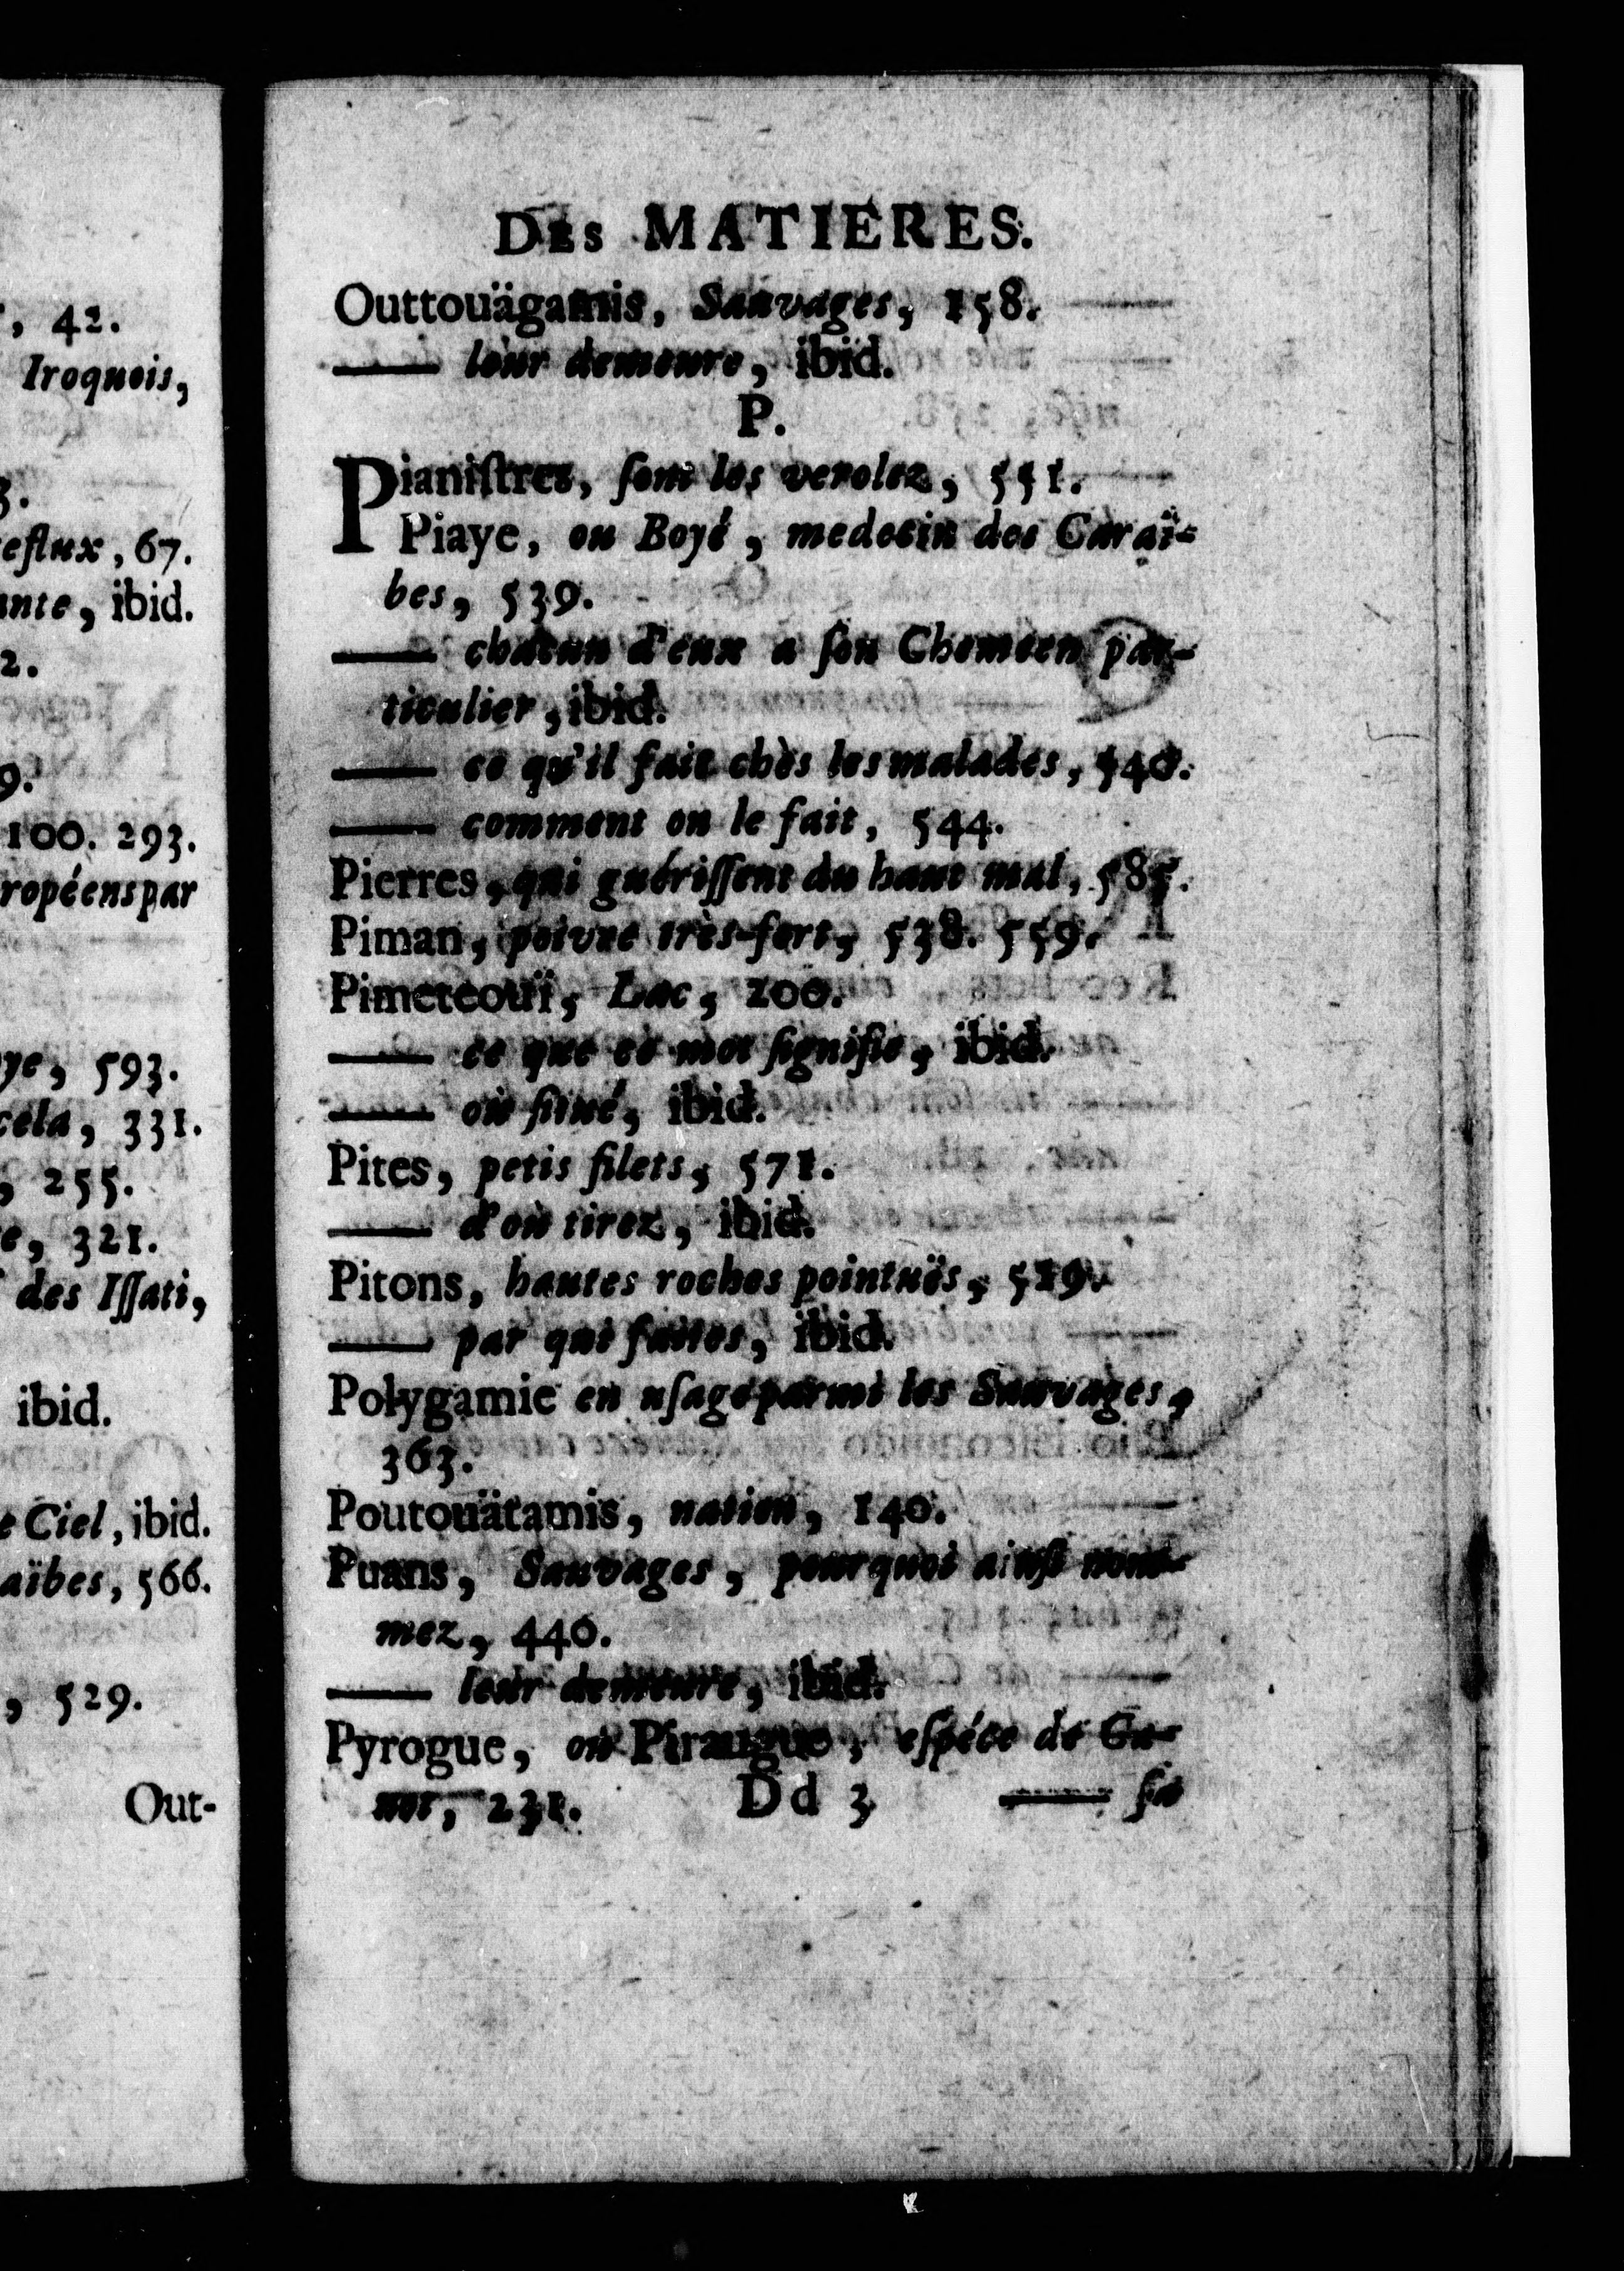 , 42.
Iroquois,
3.
eflux, 67.
nte, ibid.
2.
9.
100. 293.
ropéens par
ye, 593.
cela, 331.
, 255.
e, 321.
des Iſſati,
ibid.
e Ciel, ibid.
aïbes, 566.
, 529.
Out-
DES MATIERES.
Outtouägamis, Sauvages, 158.
—— leur demeure, ibid.
P.
Pianiſtres, ſont les verolez, 551.
Piaye, ou Boyé, medecin des Caraï-
bes, 539.
—— chacun d'eux a ſon Chemeen par-
ticulier, ibid.
—— ce qu'il fait chès les malades, 540.
—— comment on le fait, 544.
Pierres, qui guériſſent du haut mal, 585.
Piman, poivre très-fort, 538. 559.
Pimeteouï, Lac, 200.
—— ce que ce mot ſignifie, ibid.
—— où ſitué, ibid.
Pites, petis filets, 571.
—— d'où tirez, ibid.
Pitons, hautes roches pointuës, 519.
—— par qui faites, ibid.
Polygamie en uſage parmi les Sauvages,
363.
Poutouätamis, nation, 140.
Puans, Sauvages, pourquoi ainſi nom-
mez, 440.
—— leur demeure, ibid.
Pyrogue, ou Piraugue, eſpéce de Ca-
not, 231. Dd 3 —— ſa